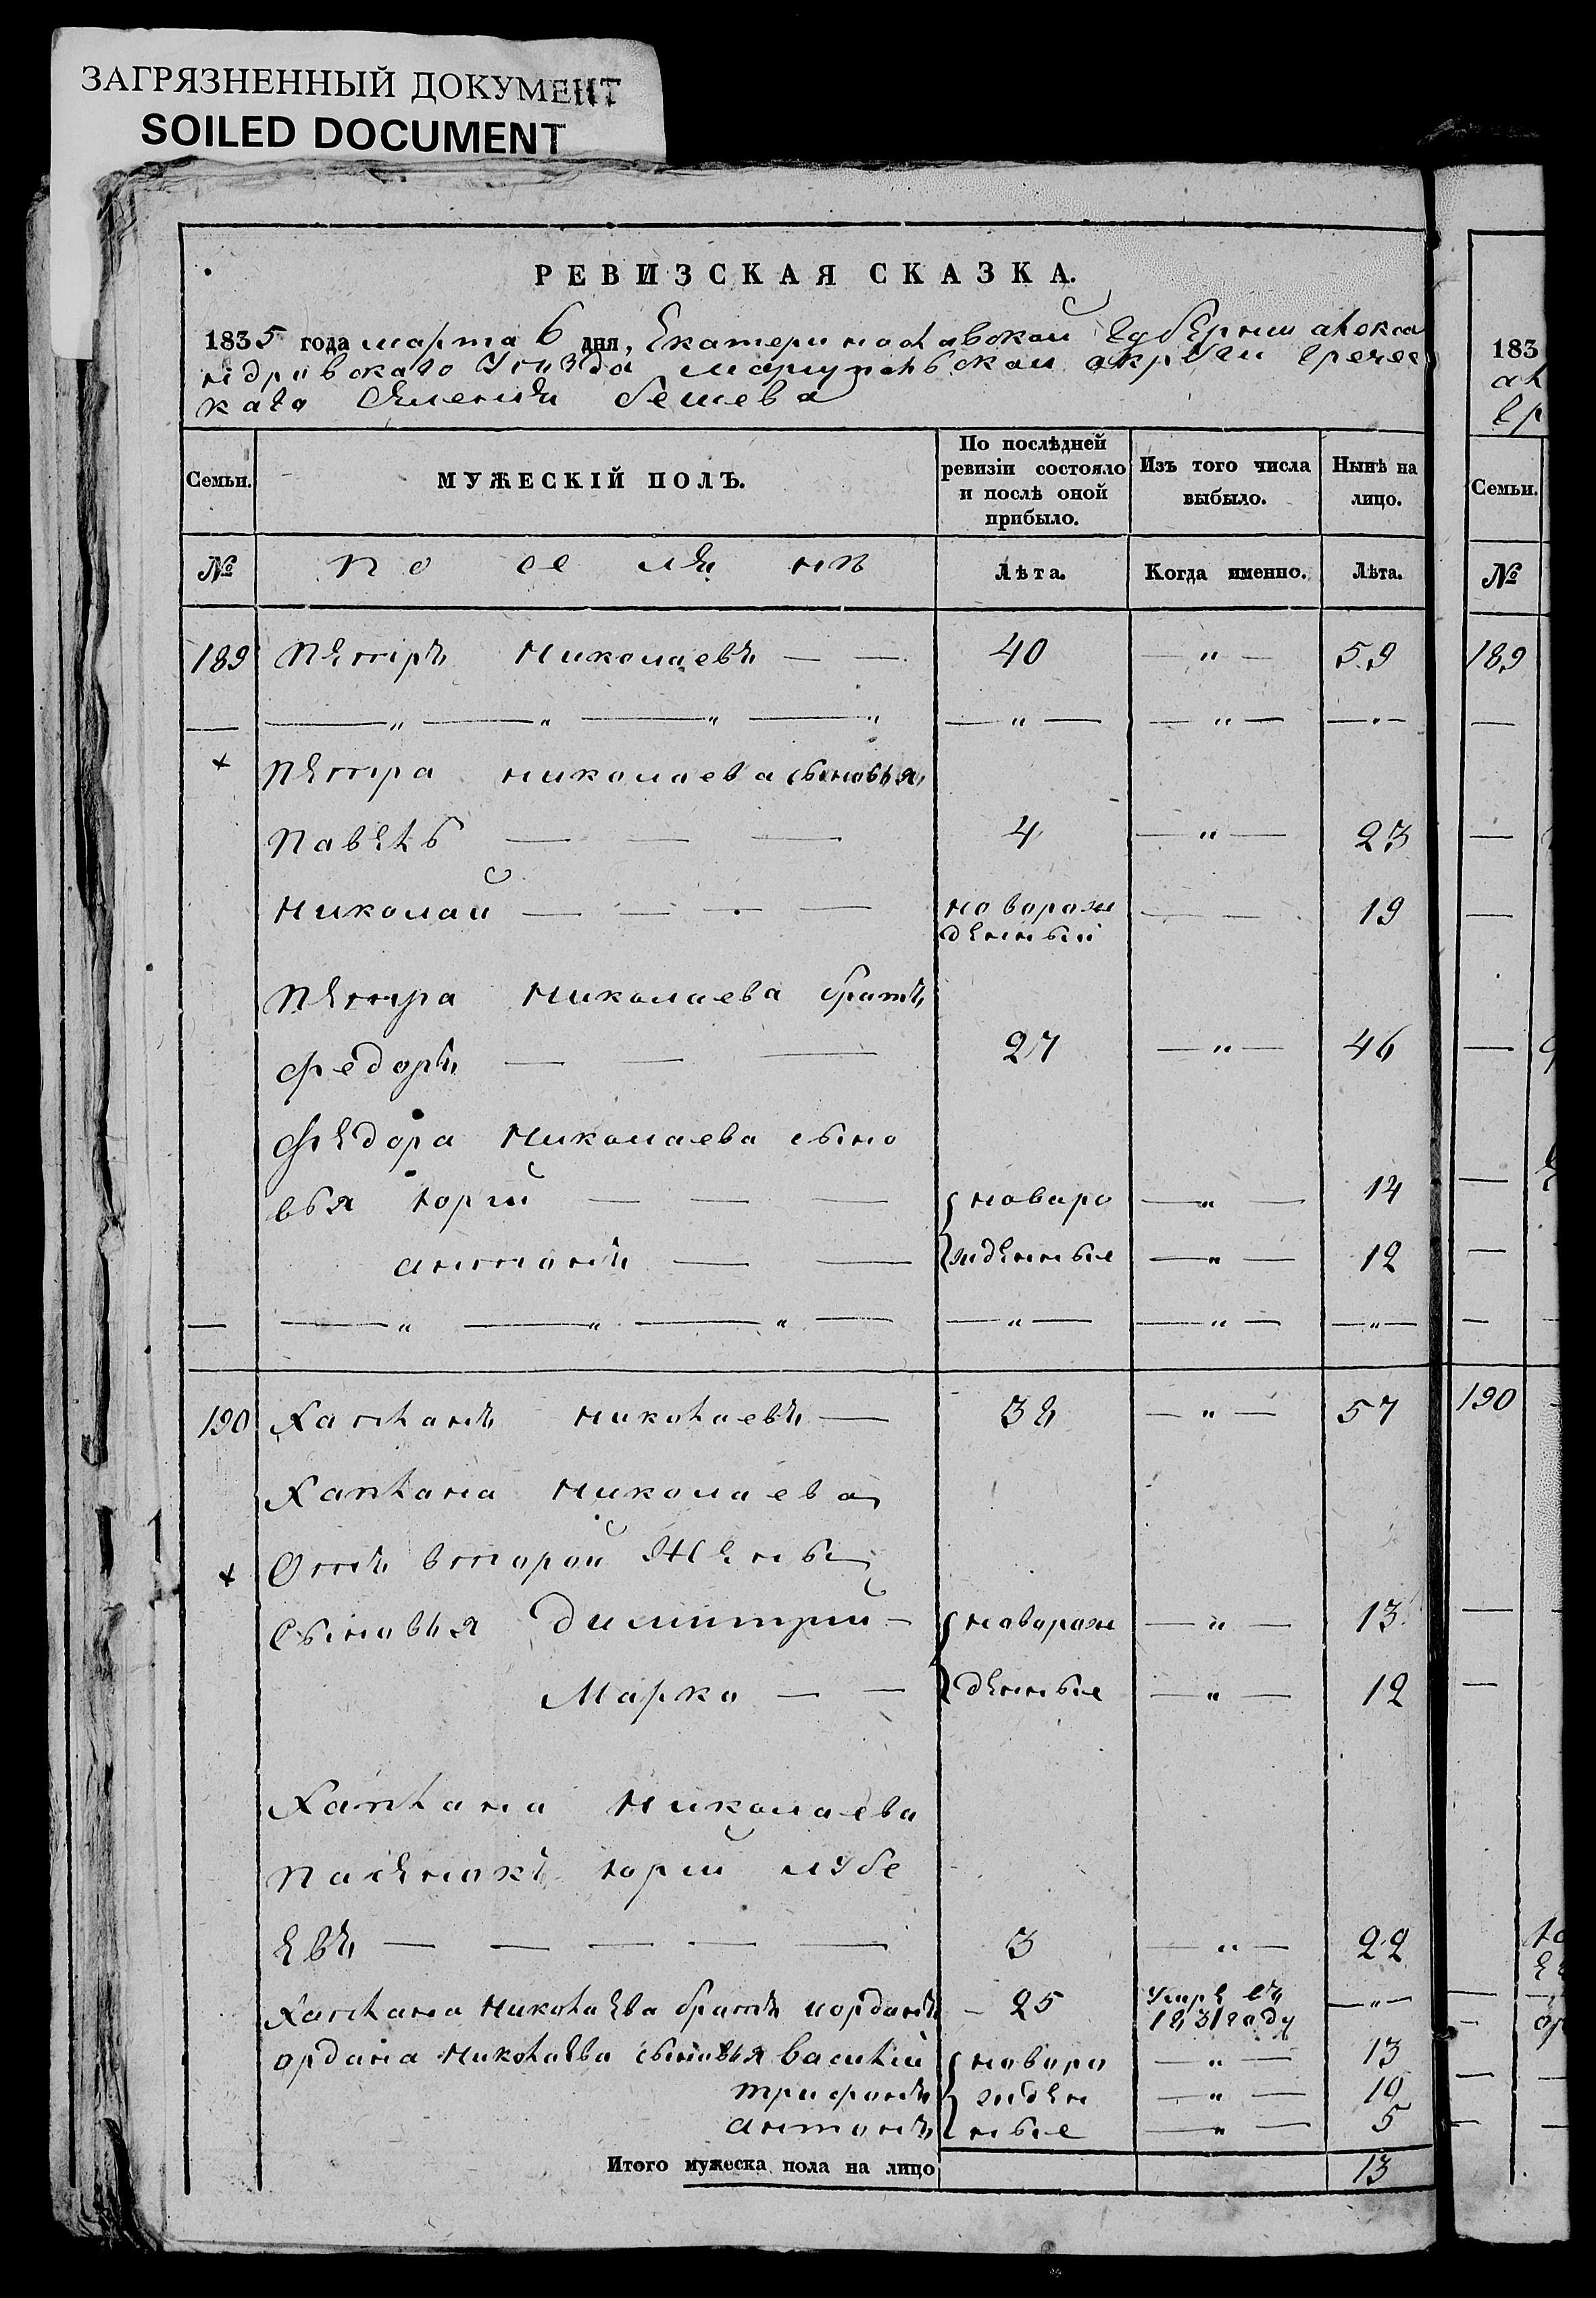 ЗАГРЯЗНЕННЫЙ ДОКУМЕНТ
SOILED DOCUMENT
РЕВИЗСКАЯ СКАЗКА.
1835 года марта 6 дня, Екатеринославской губернии алекса
ндровскаго уезда мариупольскаи округи гречес
каго селения бешева
Семьи.
МУЖЕСКІЙ ПОЛЪ.
По послѣдней ревизіи состояло и послѣ оной прибыло.
Изъ того числа выбыло.
Нынѣ на лицо.
№ поселянъ Лѣта. Когда именно. Лѣта.
189 Петръ Николаевъ — — 40 — " — 59
Петра николаева сыновья
Павелъ — — — 4 — " — 23
Николай — — — — новорож денный — — 19
Петра Николаева братъ
федоръ — — — 27 — " — 46
Федора Николаева сыно
вья юрий — — — новоро — " — 14
антонъ — — жденные — " — 12
190 Харлани николаевъ — 38 — " — 57
Николаева
Отъ второй жены
Сыновья димитрий — новорож — " — 13
Марко — — денные — " — 12
Николаева
пасенокъ юрий лубе
евъ — — — — — 3 — " — 22
николаева братъ иорданъ — 25 умре въ 1831 году — " —
ордана николаева сыновья василий новоро — " — 13
трифонъ жден — " — 10
антонъ ные — " — 5
Итого мужеска пола на лицо 13
183
Семьи.
№
189
190